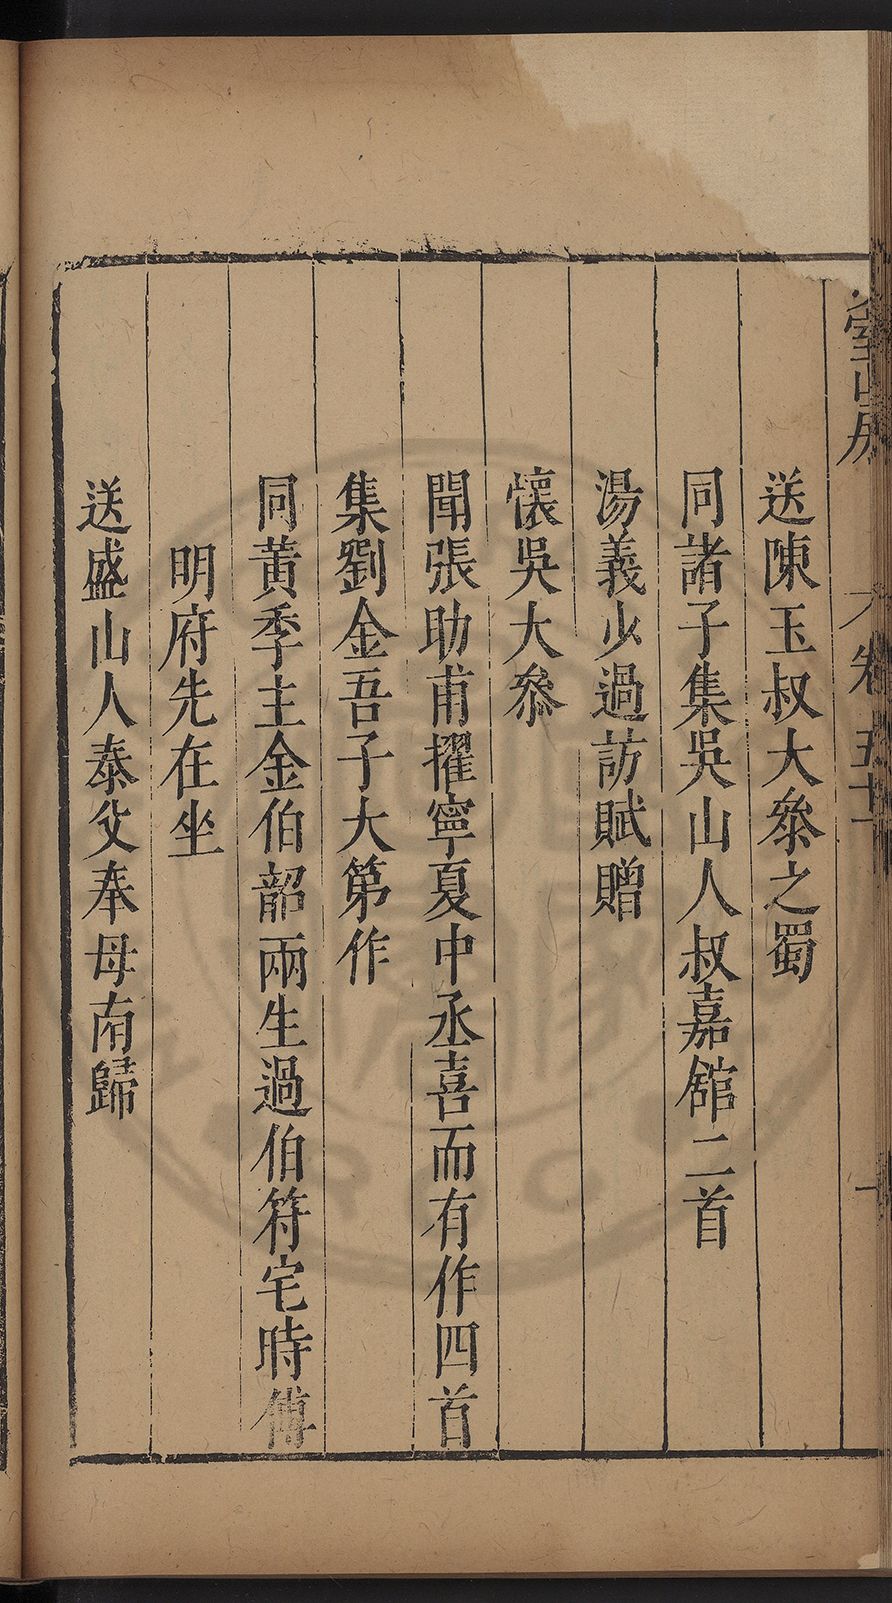 室山房
卷五十
一
送陳玉叔大叅之蜀
同諸子集吳山人叔嘉舘二首
湯義少過訪賦贈
懷吳大叅
聞張助甫擢寧夏中丞喜而有作四首
集劉金吾子大第作
同黃季主金伯韶兩生過伯符宅時傅
明府先在坐
送盛山人泰父奉母南歸